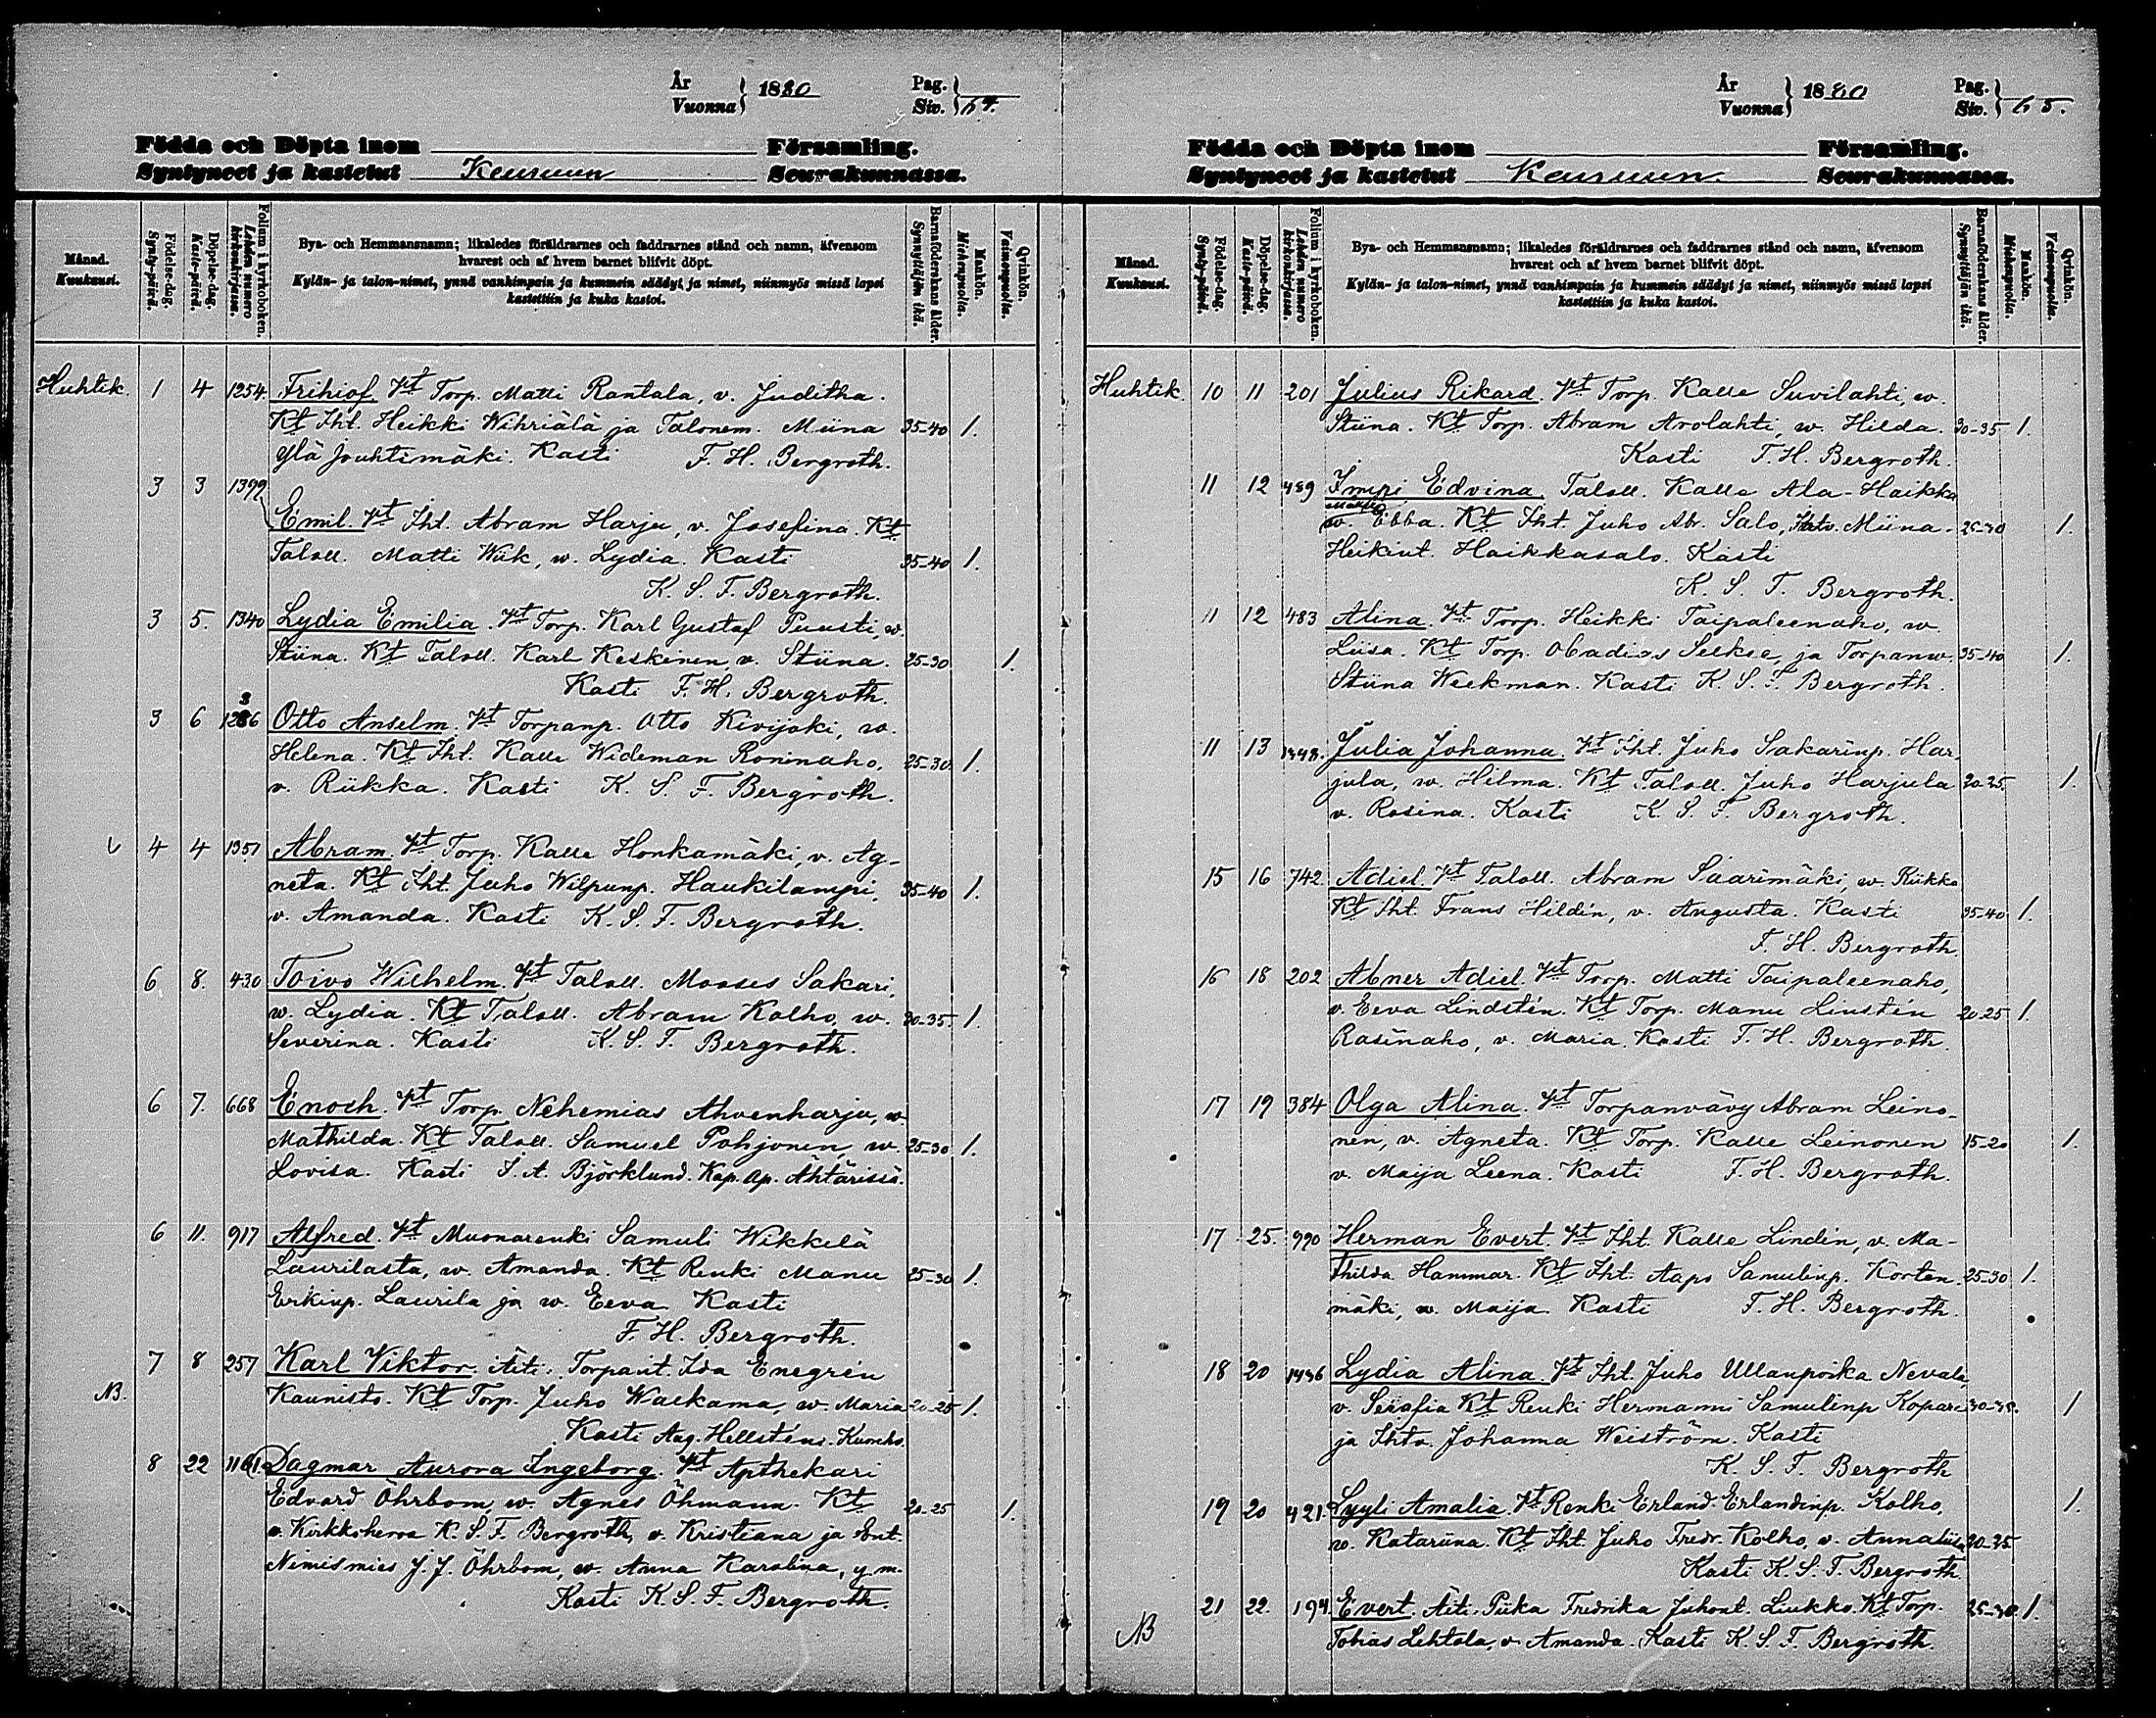 År
Vuonna } 1880
Pag.
Siv. } 64.
Födda och Döpta inom Församling.
Syntyneet ja kastetut Keuruun Seurakunnassa.
Månad.
Kuukausi.
Födelse-dag.
Synty-päivä.
Döpelse-dag.
Kaste-päivä.
Folium i kyrkoboken.
Lehden numero kirkonkirjassa.
Bya- och Hemmansnamn; likaledes föräldrarnes och faddrarnes stånd och namn, äfvensom
hvarest och af hvem barnet blifvit döpt.
Kylän- ja talon-nimet, ynnä vanhimpain ja kummein säädyt ja nimet, niinmyös missä lapsi
kastettiin ja kuka kastoi.
Barnaföderskans ålder.
Synnyttäjän ikä.
Mankön.
Miehenpuolia.
Qvinkön.
Vaimonpuolia.
Huhtik. 1 4 1254 Frihiof. Vt Torp. Matti Rantala, v. Juditha.
Kt Iht. Heikki Wihriälä ja Talonem. Miina 35-40 1.
Ylä Jouhtimäki. Kasti F. H. Bergroth.
3 3 1399
Emil. Vt Iht. Abram Harju, v. Josefina. Kt
Taloll. Matti Wiik, w. Lydia. Kasti 35-40 1.
K. S. F. Bergroth.
3 5. 1340 Lydia Emilia. Vt Torp. Karl Gustaf Puusti, w.
Stiina. Kt Taloll. Karl Keskinen, v. Stiina. 25-30 1.
Kasti F. H. Bergroth.
3 6 1286 Otto Anselm. Vt Torpanp. Otto Kivijoki, w.
3
Helena. Kt Iht. Kalle Wideman Roninaho, 25-30. 1.
v. Riikka. Kasti K. S. F. Bergroth.
4 4 1351 Abram. Vt Torp. Kalle Honkamäki, v. Ag-
neta. Kt Iht. Juho Wilpunp. Haukilampi, 35-40 1.
v. Amanda. Kasti K. S. F. Bergroth.
6 8. 430 Toivo Wilhelm. Vt Taloll. Mooses Sakari,
w. Lydia. Kt Taloll. Abram Kolho, w. 30-35. 1.
Severina. Kasti K. S. F. Bergroth.
6 7. 668 Enoch. Vt Torp. Nehemias Ahvenharju, w.
Mathilda. Kt Taloll. Samuel Pohjonen, w. 25-30 1.
Lovisa. Kasti I. A. Björklund. Kap. Ap. Ähtärissä.
6 11. 917 Alfred. Vt Muonarenki Samuli Wikkelä
Laurilasta, w. Amanda. Kt Renki Manu 25-30 1.
Erkinp. Laurila ja w. Eeva. Kasti
F. H. Bergroth.
7 8 257 Karl Viktor. Äiti: Torpant. Ida Enegrén
NB. Kaunisto. Kt Torp. Juho Walkama, w. Maria 20-25 1.
Kasti Aug. Hellsténs.
8 22 1161. Dagmar Aurora Ingeborg. Vt Apthekari
Edvard Öhrbom, w. Agnes Öhmann. Kt 20-25 1.
v. Kirkkoherra K. S. F. Bergroth, v. Kristiana ja Ent.
Nimismies J. J. Öhrbom, w. Anna Karolina, y m.
Kasti K. S. F. Bergroth.
År
Vuonna } 1880
Pag.
Siv. } 65.
Födda och Döpta inom Församling.
Syntyneet ja kastetut Keuruun Seurakunnassa.
Månad.
Kuukausi.
Födelse-dag.
Synty-päivä.
Döpelse-dag.
Kaste-päivä.
Folium i kyrkoboken.
Lehden numero kirkonkirjassa.
Bya- och Hemmansnamn; likaledes föräldrarnes och faddrarnes stånd och namn, äfvensom
hvarest och af hvem barnet blifvit döpt.
Kylän- ja talon-nimet, ynnä vanhimpain ja kummein säädyt ja nimet, niinmyös missä lapsi
kastettiin ja kuka kastoi.
Barnaföderskans ålder.
Synnyttäjän ikä.
Mankön.
Miehenpuolia.
Qvinkön.
Vaimonpuolia.
Huhtik. 10 11 201 Julius Rikard. Vt Torp. Kalle Suvilahti, w.
Stiina. Kt Torp. Abram Arolahti, w. Hilda. 30-35 1.
Kasti F. H. Bergroth.
11 12 489 Impi Edvina. Taloll. Kalle Ala-Haikka
w. Ebba. Kt Iht. Juho Ab. Salo, Itv. Miina 25-30 1.
Heikint. Haikkasalo. Kasti
K. S. F. Bergroth.
11 12 483 Alina. Vt Torp. Heikki Taipaleenaho, w.
Liisa. Kt Torp. Obadias Selkee, ja Torpanw. 35-40 1.
Stiina Weckman. Kasti K. S. F. Bergroth.
11 13 1448. Julia Johanna. Vt Iht. Juho Sakarinp. Har-
jula, w. Hilma. Kt Taloll. Juho Harjula 20-25. 1.
v. Rosina. Kasti K. S. F. Bergroth.
15 16 742 Adiel. Vt Taloll. Abram Saarimäki, w. Riikka
Kt Iht. Frans Hildén, v. Augusta. Kasti 35-40 1.
F. H. Bergroth.
16 18 202 Abner Adiel. Vt Torp. Matti Taipaleenaho,
v. Eeva Lindstén. Kt Torp. Manu Linstén 20-25 1.
Rasinaho, v. Maria. Kasti F. H. Bergroth.
17 19 384 Olga Alina. Vt Torpanvävy Abram Leino-
nen, v. Agneta. Kt Torp. Kalle Leinonen 15-20 1.
v. Maija Leena. Kasti F. H. Bergroth.
17 25. 990 Herman Evert. Vt Iht. Kalle Lindén, v. Ma-
thilda Hammar. Kt Iht. Aapo Samulinp. Korten- 25-30 1.
mäki, w. Maija. Kasti F. H. Bergroth.
18 20 1436 Lydia Alina. Vt Iht. Juho Ullanpoika Nevala,
v. Serafia Kt Renki Hermanni Samulinp Kopare 30-35. 1
ja Ihtv. Johanna Weiström. Kasti
K. S. F. Bergroth
19 20 421. Lyyli Amalia. Vt Renki Erland Erlandinp. Kolho, 1.
w. Katariina. Kt Iht. Juho Fredr. Kolho, v. Annaliisa 30-35
Kasti K. S. F. Bergroth.
21 22. 194. Evert. Äiti: Piika Fredrika Juhont. Liukko. Kt Torp. 25-30. 1.
NB Tobias Lehtola, v. Amanda. Kasti K. S. F. Bergroth.